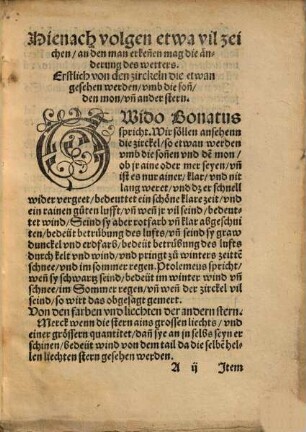 Hienach volgen etwa vil zei
chen / an den man erkeñen mag die än
derung des wetters.
Erstlich von den zirckeln die etwan
gesehen werden / vmb die soñ /
den mon / vñ ander stern.
GWido Bonatus
spricht. Wir söllen ansehenn
die zirckel / so etwan werden
vmb die soñen vnd dẽ mon /
ob je aine oder mer seyen / vñ
ist es nur ainer / klar / vnd nit
lang weret / vnd dz er schnell
wider vergeet / bedeuttet ein schöne klare zeit / vnd
ein rainen gůten lufft / vñ weñ jr vil seind / bedeut
tet wind / Seind sy aber rotfarb vñ klar abgeschni
ten / bedeüt betrübung des lufts / vñ seind sy graw
dunckel vnd erdfarb / bedeüt betrübung des lufts
durch kelt vnd wind / vnd pringt zů winters zeittẽ
schnee / vnd im sommer regen. Ptolemeus spricht
weñ sy schwartz seind / bedeüt im winter wind vñ
schnee / im Sommer regen / vñ weñ der zirckel vil
seind / so wirt das obgesagt gemert.
Von den farben vnd liechten der andern stern.
Merck wenn die stern ains grossen liechts / vnd
einer grössern quantitet / dañ sye an jn selbs seyn er
schinen / bedeüt wind von dem tail da die selbẽ hel
len liechten stern gesehen werden.
A ij Item